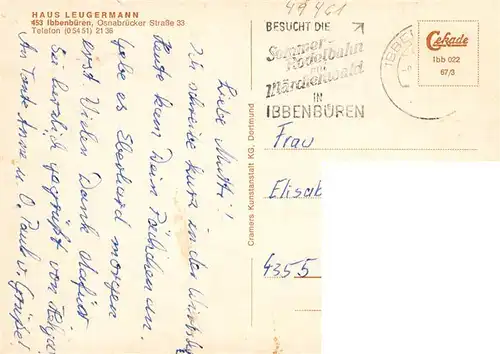 HAUS LEUGERMANN
453 Ibbenbüren, Osnabrücker Straße 33
Telefon (05451) 2136
49461
BESUCHT DIE
Sommer-
Rodelbahn
Märchenwald
IN
IBBENBÜREN
IBBEN
Cekade
Ibb 022
67/3
Liebe Mutti!
Ich schreibe kurz in der
Heute kam Dein Päckchen an.
gebe es Eberhard morgen
erst. Vielen Dank dafür
Sei herzlich gegrüßt von
An Tante Anna u. O. Paul v. Grüße!
Cramers Kunstanstalt KG, Dortmund
Frau
Elisab
4355